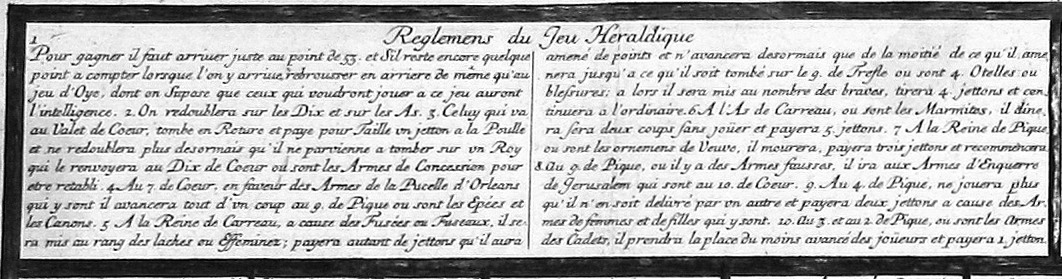 Reglemens du Jeu Héraldique
1
Pour gagner il faut arriuer juste au point de 53. et S'il reste encore quelque
point a compter lorsque l'on y arriue, rebrousser en arriere de même qu'au
jeu d'Oye, dont on Supose que ceux qui voudront jouer a ce jeu auront
l'intelligence. 2. On redoublera sur les Dix et sur les As. 3. Celuy qui va
au Valet de Coeur, tombe en Roture et paye pour Taille vn jetton a la Poulle
et ne redoublera plus desormais qu'il ne parvienne a tomber sur vn Roy
qui le renvoyera au Dix de Coeur ou sont les Armes de Concession pour
etre retabli. 4. Au 7. de Coeur, en faveur des Armes de la Pucelle d'Orleans
qui y sont il avancera tout d'vn coup au 9. de Pique ou sont les Epées et
les Canons. 5 A la Reine de Carreau, a cause des Fusées ou Fuseaux, il se-
ra mis au rang des laches ou Effeminez; payera autant de jettons qu'il aura
amené de points et n'avancera desormais que de la moitié de ce qu'il ame
nera jusqu'a ce qu'il soit tombé sur le 9. de Trefle ou sont 4. Otelles ou
blessures; a lors il sera mis au nombre des braves, tirera 4. jettons et con
tinuera à l'ordinaire. 6 A l'As de Carreau, ou sont les Marmites, il dine
ra sera deux coups sans joüer et payera 5. jettons. 7 A la Reine de Pique
ou sont les ornemens de Veuve, il mourera, payera trois jettons et recommencera
8. Au 9. de Pique, ou il y a des Armes fausses, il ira aux Armes d'Enquerre
de Jerusalem qui sont au 10. de Coeur. 9. Au 4. de Pique, ne jouera plus
qu'il n'en soit delivré par vn autre et payera deux jettons a cause des Ar
mes de femmes et de filles qui y sont. 10. Au 3. et au 2. de Pique, ou sont les Armes
des Cadets, il prendra la place du moins avancé des joüeurs et payera 1. jetton.